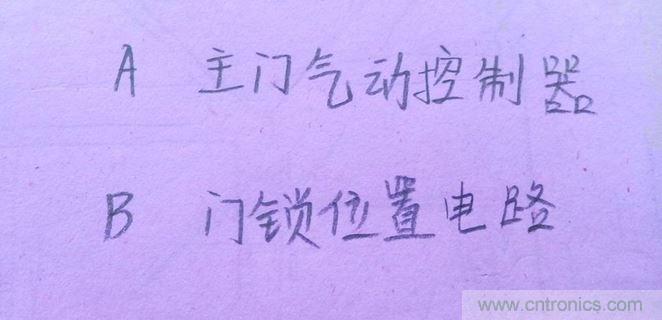 A 主门气动控制器
B 门锁位置电路
www.cntronics.com